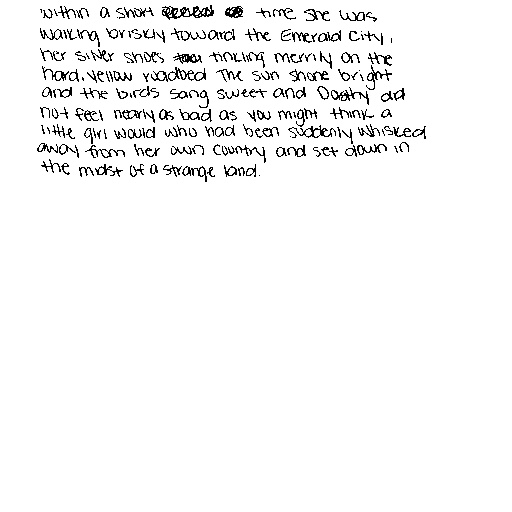 within a short time she was
walking briskly toward the Emerald City,
her silver shoes tinkling merrily on the
hard, yellow roadbed The sun shone bright
and the birds sang sweet and Dorothy did
not feel nearly as bad as you might think a
little girl would who had been suddenly whisked
away from her own country and set down in
the midst of a strange land.